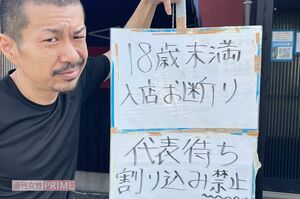 18歳未満
入店お断り
代表待ち
割り込み禁止
週刊女性PRIME